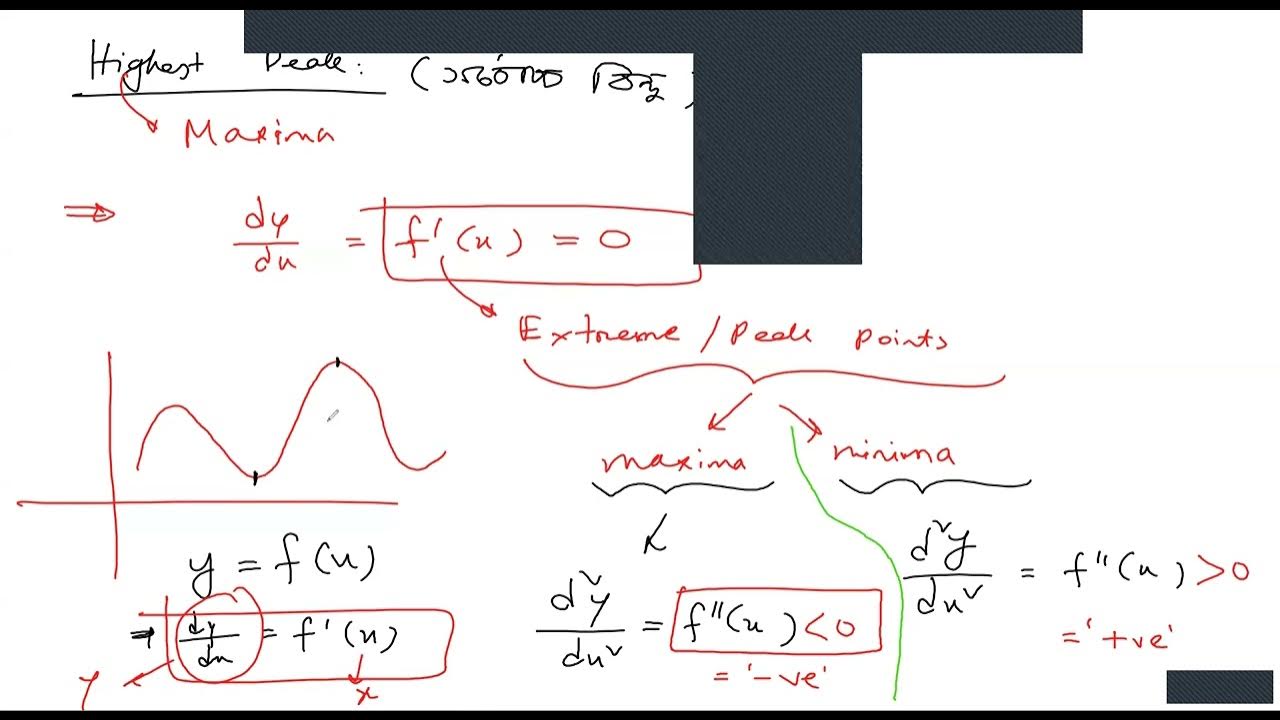 Highest Peak: (সর্বোচ্চ বিন্দু)
Maxima
⇒ dy/dx = f'(x) = 0
Extreme / Peak points
maxima minima
y = f(x)
⇒ dy/dx = f'(x)
y x
d²y/dx² = f''(x) < 0
= '-ve'
d²y/dx² = f''(x) > 0
= '+ve'